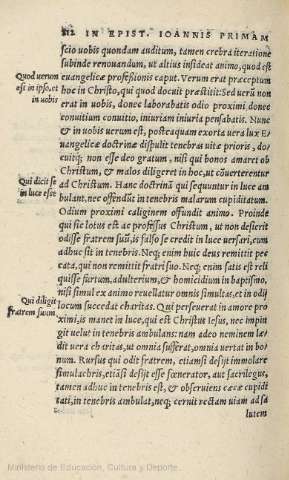 212 IN EPIST. IOANNIS PRIMAM
scio uobis quondam auditum, tamen crebra iteratione
subinde renouandum, ut altius insideat animo, quod est
Quod uerum
est in ipso, et
in uobis
euangelicæ professionis caput. Verum erat præceptum
hoc in Christo, qui quod docuit præstitit: Sed uerū non
erat in uobis, donec laborabatis odio proximi, donec
conuitium conuitio, iniuriam iniuria pensabatis. Nunc
& in uobis uerum est, posteaquam exorta uera lux E⸗
uangelicæ doctrinæ dispulit tenebras uitæ prioris, do⸗
cuitq; non esse deo gratum, nisi qui bonos amaret ob
Christum, & malos diligeret in hoc, ut cōuerterentur
Qui dicit se
in luce esse
ad Christum. Hanc doctrinā qui sequuntur in luce am
bulant, nec offendūt in tenebris malarum cupiditatum.
Odium proximi caliginem offundit animo. Proinde
qui sic lotus est ac professus Christum, ut non desierit
odisse fratrem suū, is falso se credit in luce uersari, cum
adhuc sit in tenebris. Neq; enim huic deus remittit pec
cata, qui non remittit fratri suo. Neq; enim satis est reli
quisse furtum, adulterium, & homicidium in baptismo,
nisi simul ex animo reuellatur omnis simultas, et in odij
Qui diligit
fratrem suum.
locum succedat charitas. Qui perseuerat in amore pro
ximi, is manet in luce, qui est Christus Iesus, nec impin
git uelut in tenebris ambulans: nam adeo neminem læ⸗
dit uera charitas, ut omnia sufferat, omnia uertat in bo⸗
num. Rursus qui odit fratrem, etiamsi desijt immolare
simulachris, etiamsi desijt esse scœnerator, aut sacrilegus,
tamen adhuc in tenebris est, & obseruiens cæcæ cupidi
tati, in tenebris ambulat, neq; cernit rectam uiam ad sa
lutem
Ministerio de Educación, Cultura y Deporte